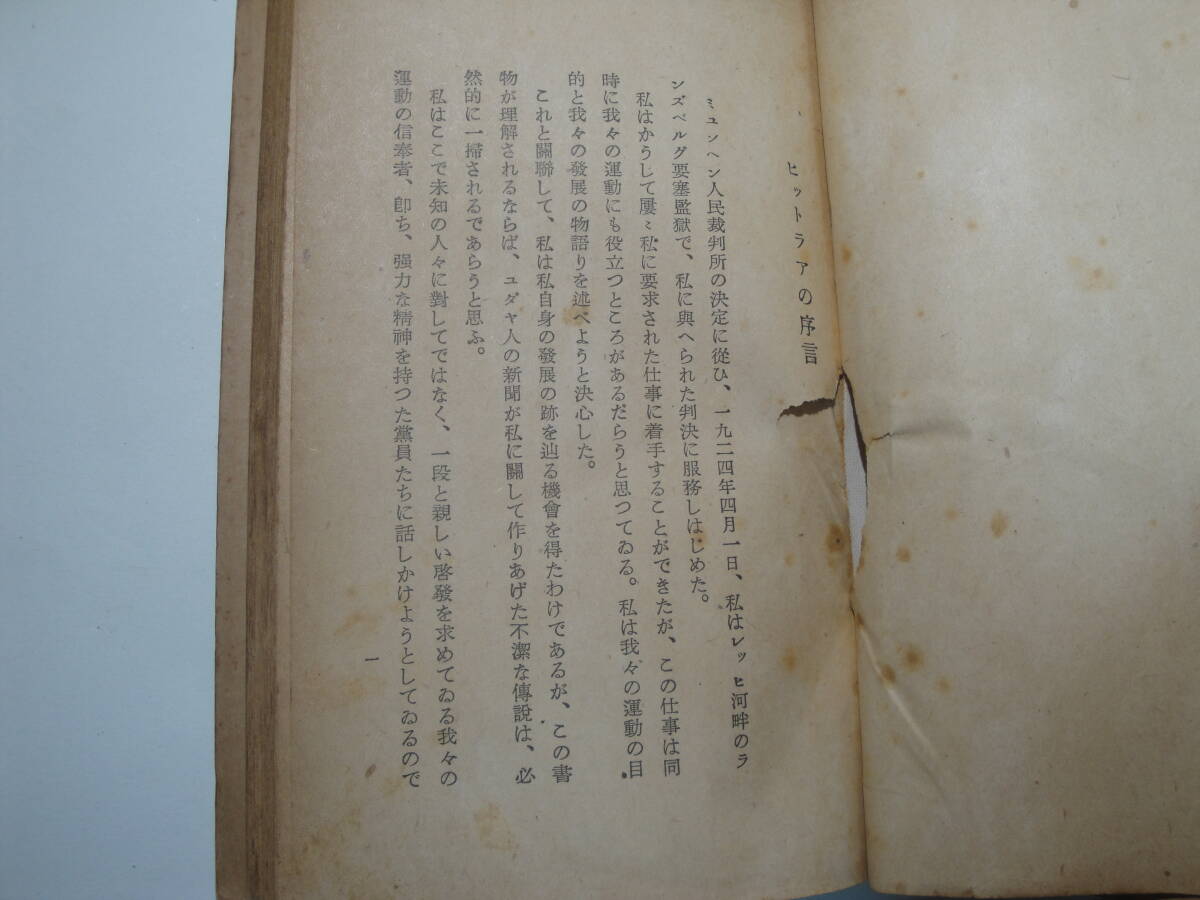 ヒットラアの序言
ミユンヘン人民裁判所の決定に從ひ、一九二四年四月一日、私はレッヒ河畔のラ
ンズベルグ要塞監獄で、私に與へられた判決に服務しはじめた。
私はかうして屢〻私に要求された仕事に着手することができたが、この仕事は同
時に我々の運動にも役立つところがあるだらうと思つてゐる。私は我々の運動の目
的と我々の發展の物語りを述べようと決心した。
これと關聯して、私は私自身の發展の跡を辿る機會を得たわけであるが、この書
物が理解されるならば、ユダヤ人の新聞が私に關して作りあげた不潔な傳說は、必
然的に一掃されるであらうと思ふ。
私はここで未知の人々に對してではなく、一段と親しい啓發を求めてゐる我々の
運動の信奉者、卽ち、强力な精神を持つた黨員たちに話しかけようとしてゐるので
一